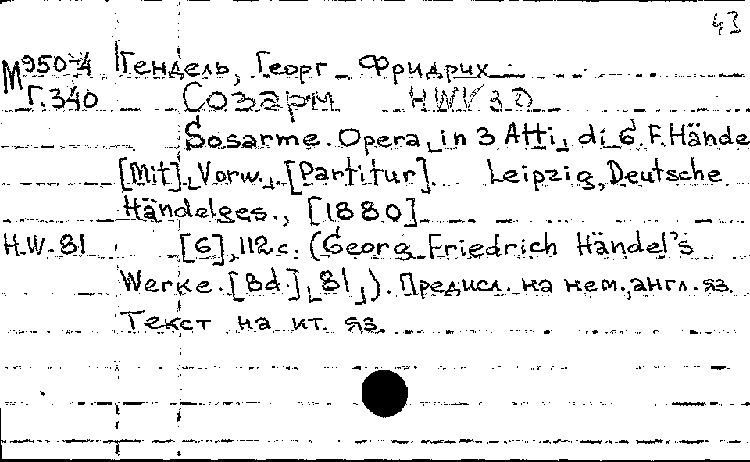 43
М950-4 Гендель, Георг Фридрих
Г.340 Созарм HWV 30
Sosarme. Opera in 3 Atti di G. F. Hände
[Mit] Vorw. [Partitur]. Leipzig, Deutsche
Händelges., [1880]
H.W.-81 [6], 112 с. (Georg Friedrich Händel's
Werke. [Bd.] 81). Предисл. на нем., англ. яз.
Текст на ит. яз.